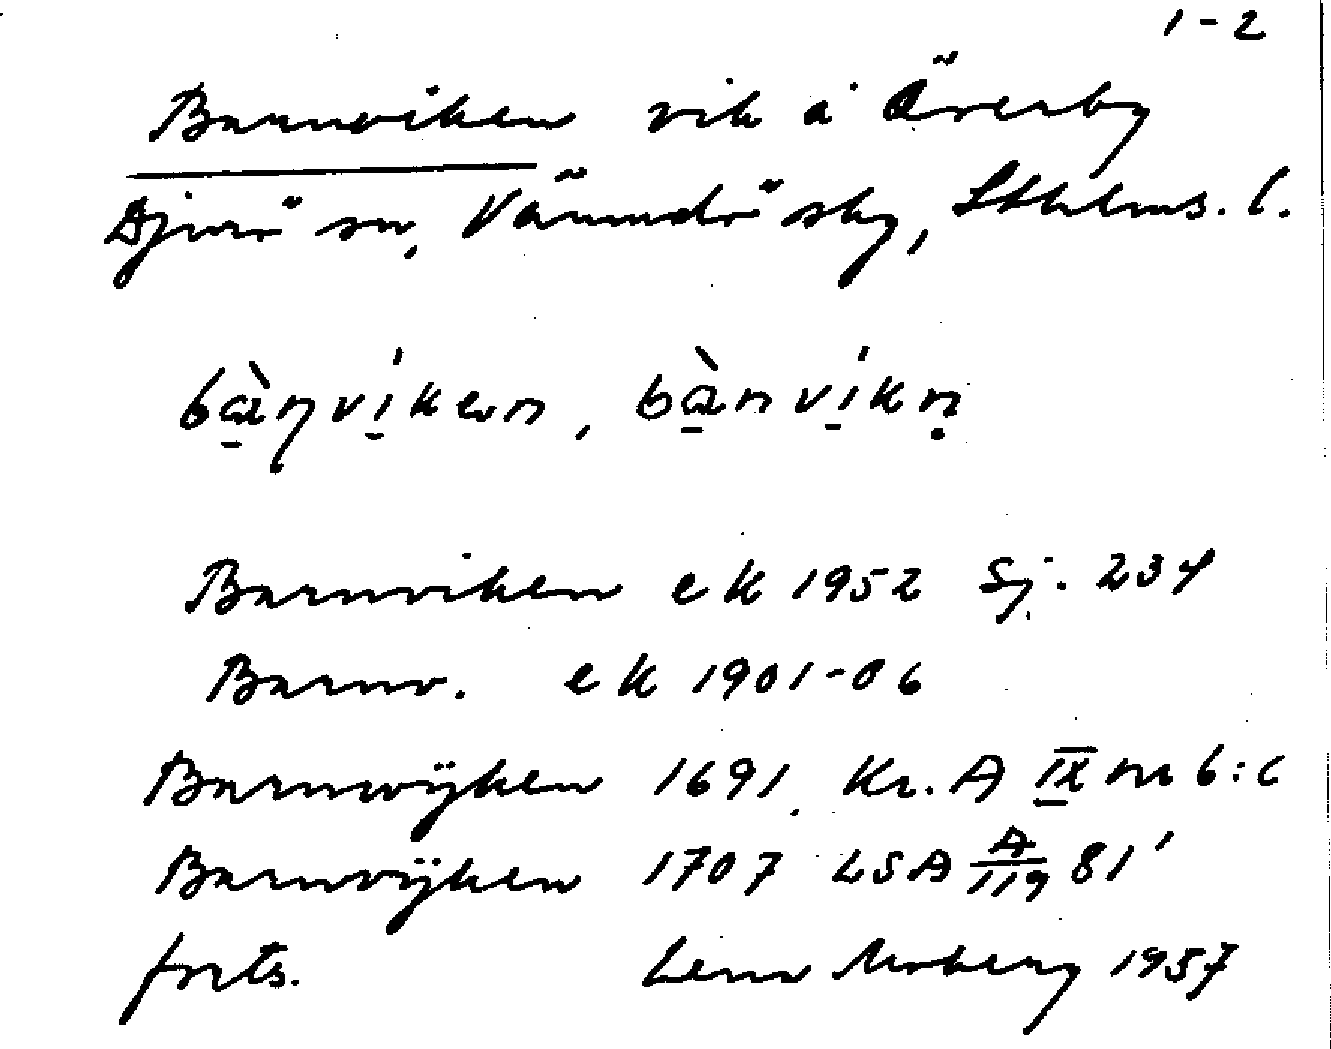 1-2
Barnviken vik å Överby
Djurö sn, Värmdö sky, Sthlms. l.
bàṉvi̱ken, bà̱nvi̱kṇ
Barnviken ek 1952 Sj. 234
Barnv. ek 1901-06
Barnwijken 1691. Kr. A IX nr 6:c
Barnvijken 1707 LSA A/119 81'
forts. Lena Moberg 1957